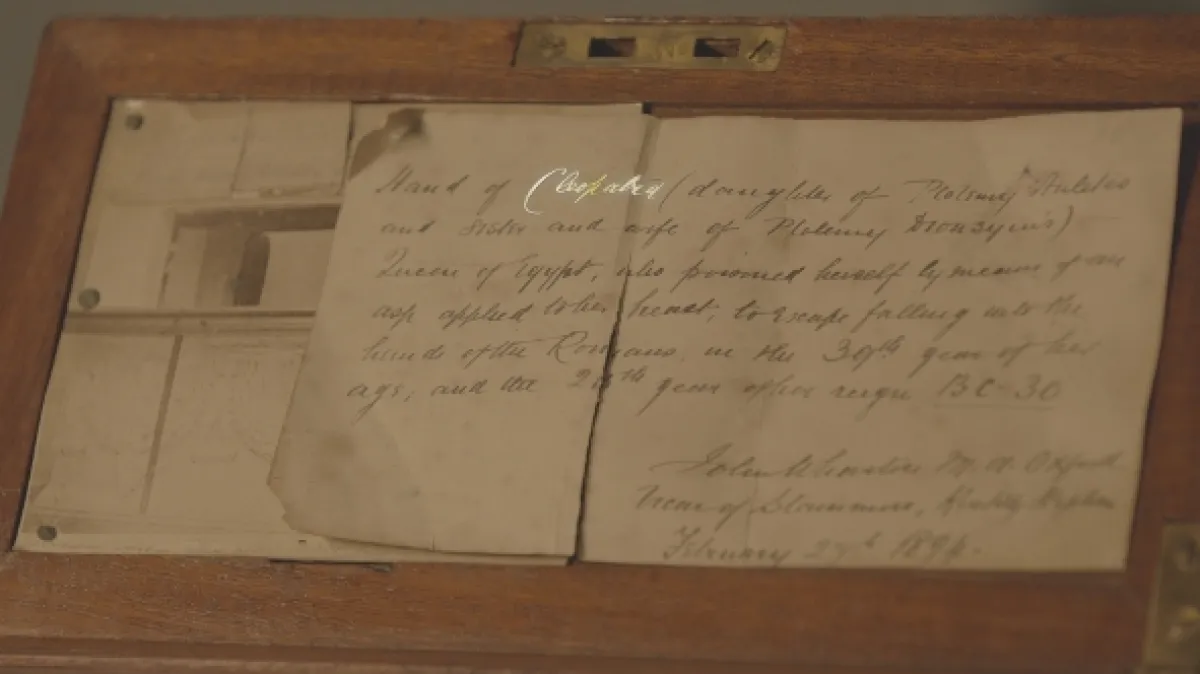 Hand of Cleopatra (daughter of Ptolemy Auletes
and sister and wife of Ptolemy Dionysius)
Queen of Egypt, who poisoned herself by means of an
asp applied to her breast, to escape falling into the
hands of the Romans, in the 39th year of her
age, and the year of her reign BC 30
John Wharton M. A. Oxford
Vicar of Stainmore, Kirkby Stephen
February 1894.